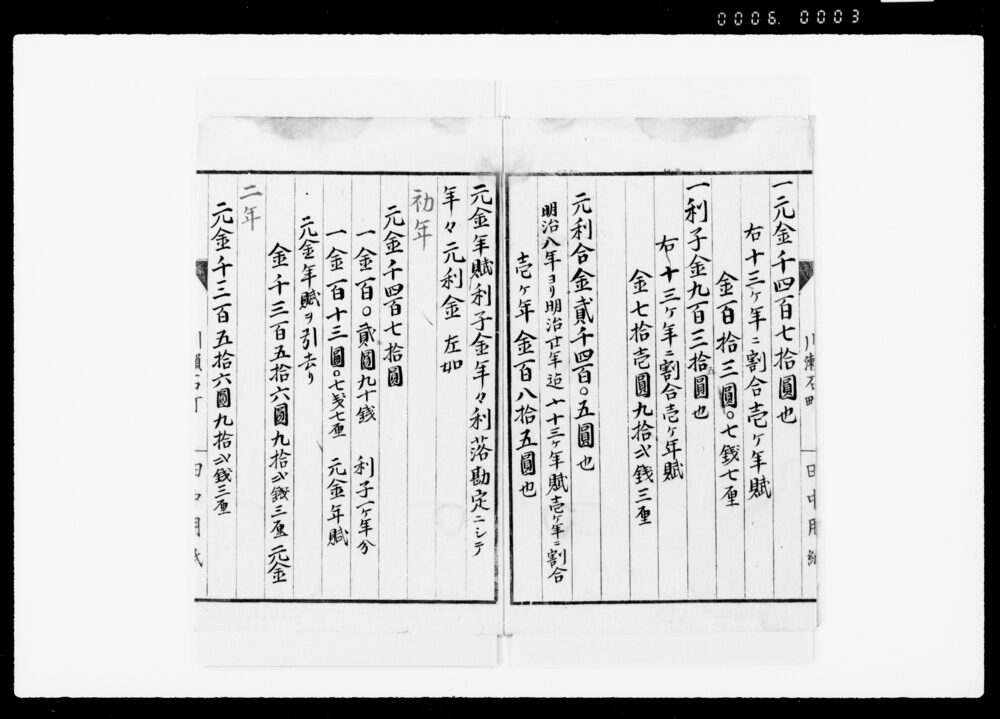 0006. 0003
一元金千四百七拾圓也
右十三ヶ年ニ割合壱ヶ年賦
金百拾三圓〇七銭七厘
一利子金九百三拾五圓也
右十三ヶ年ニ割合壱ヶ年賦
金七拾壱圓九拾弐銭三厘
元利合金貳千四百〇五圓也
明治八年ヨリ明治廿年迠十三ヶ年賦壱ヶ年ニ割合
壱ヶ年金百八拾五圓也
元金年賦利子金年々利落勘定ニシテ
年々元利金左如
初年
元金千四百七拾圓
一金百〇貳圓九十銭 利子一ヶ年分
一金百十三圓〇七戔七厘 元金年賦
元金年賦ヲ引去り
金千三百五拾六圓九拾弐銭三厘元金
二年
元金千三百五拾六圓九拾弐銭三厘